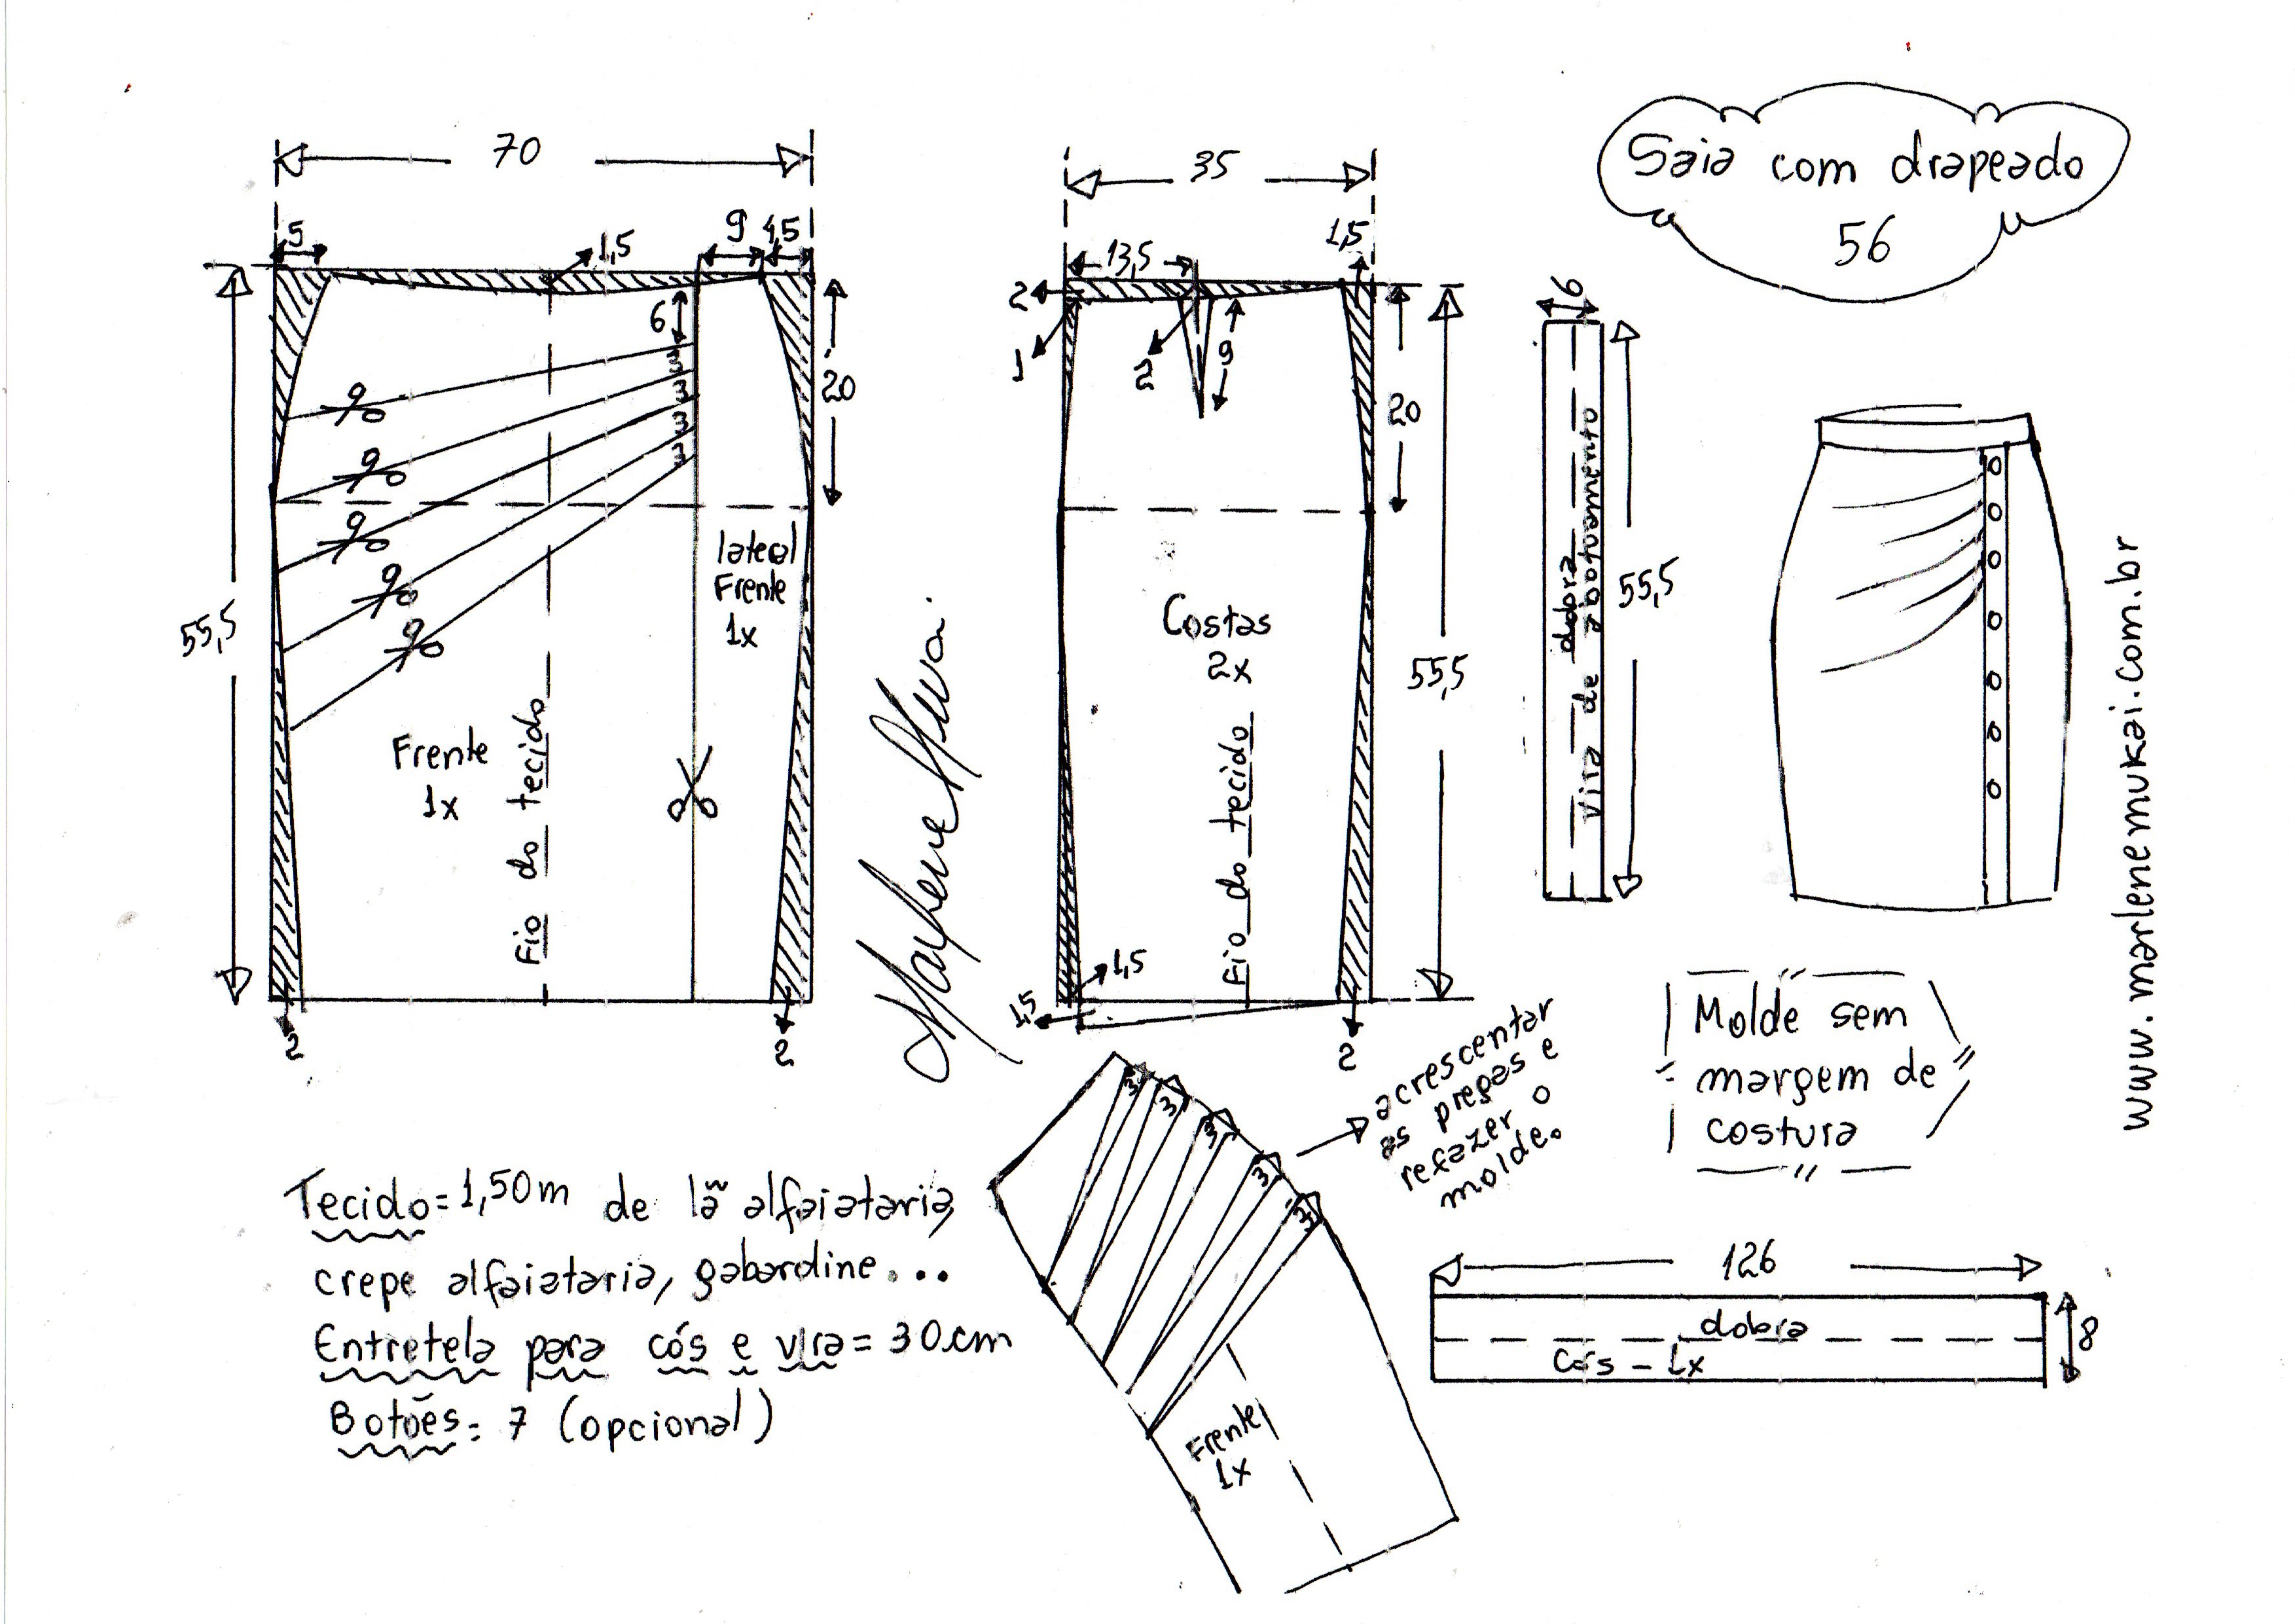 Saia com drapeado
56
70
5
1,5
9
4,5
6
3
3
3
3
20
55,5
lateal
Frente
1x
Frente
1x
Fio do tecido
2
2
35
13,5
1,5
2
1
2
9
20
Costas
2x
55,5
Fio do tecido
1,5
1,5
2
6
dobra
Vira de abotuamento
55,5
www.marlenemukai.com.br
Molde sem
margem de
costura
Marlene Mukai.
acrescentar
as pregas e
refazer o
molde.
3
3
3
3
3
Frente
1x
126
dobra
Cós - 1x
8
Tecido = 1,50m de lã alfaiataria,
crepe alfaiataria, gabardine...
Entretela para cós e vira = 30cm
Botões = 7 (opcional)